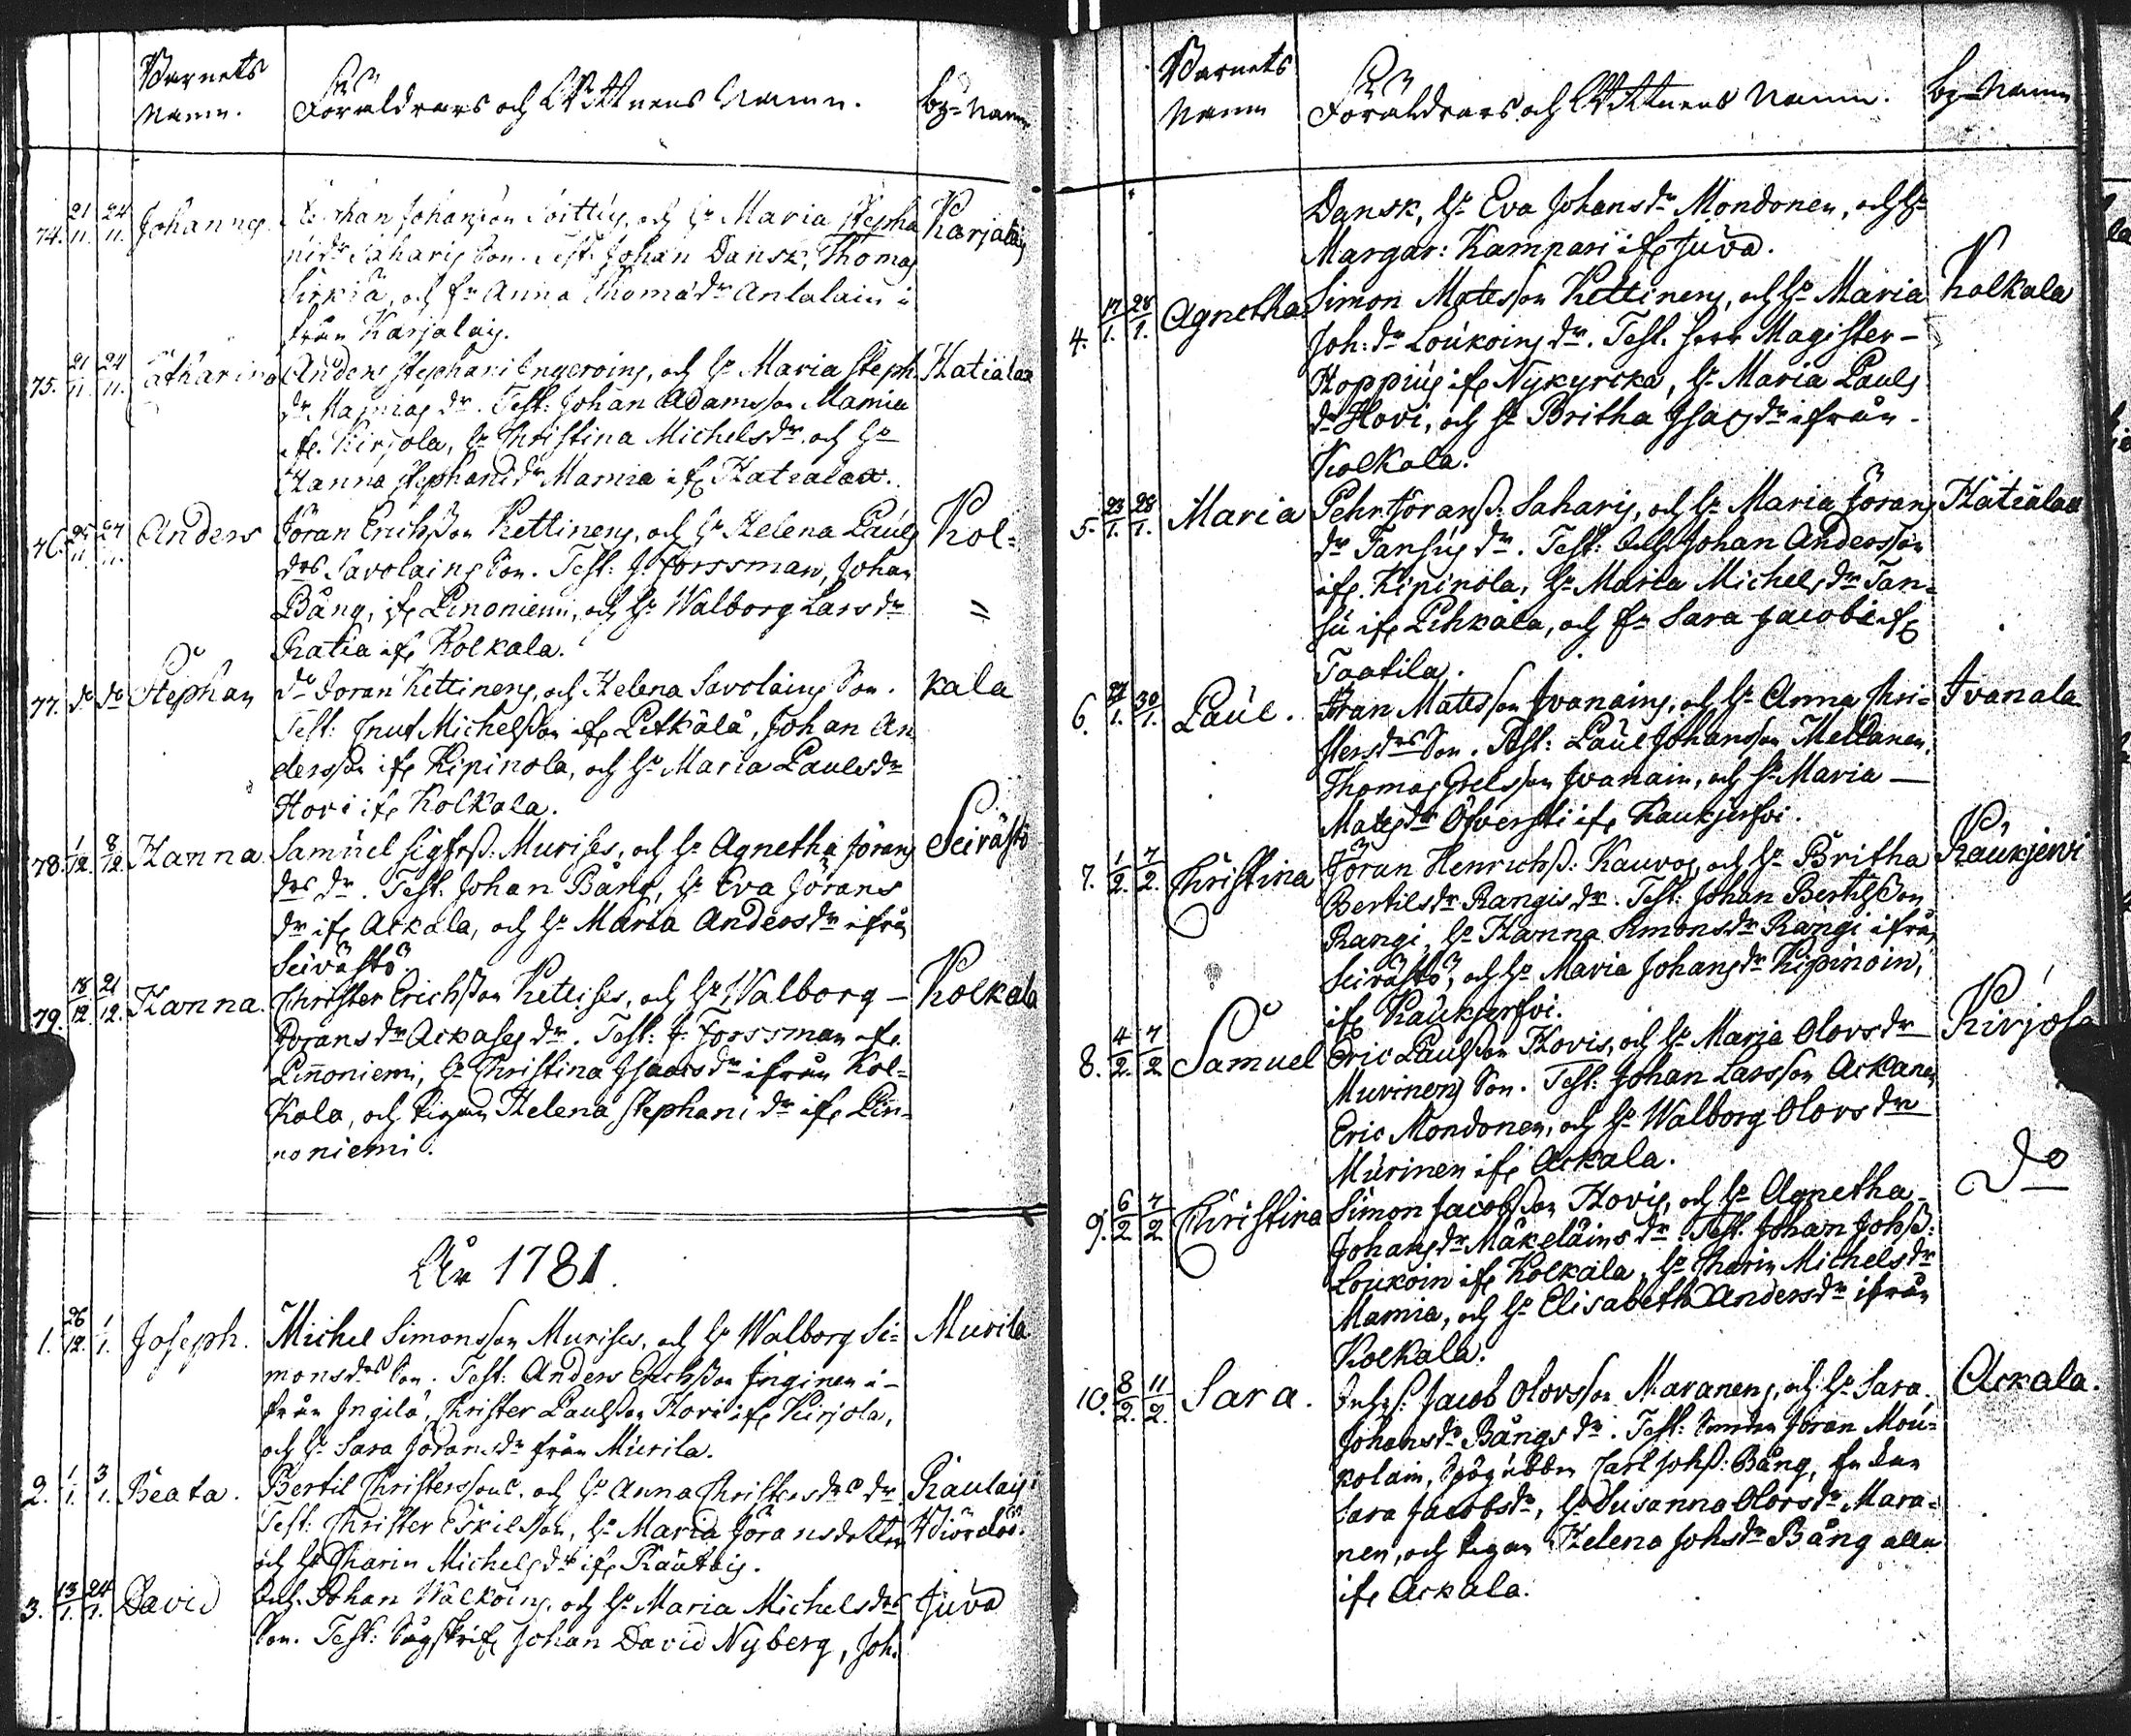 Barnets
Namn.
Föräldrars och Wittnens Namn.
by-Namn
74. 21/11. 24/11. Johannes. Johan Johansson Soittus, och h: Maria Stepha Karjalais
nidr Saharis Son. Test: Johan Dansk, Thomas
Sirkiä, och fr Anna Thomædr Antalain i
från Karjalais.
75. 21/11. 24/11. Catharina Anders Stephani Ingeroins, och h: Maria Steph: Hatialax
dr Mamias dr. Test: Johan Adamsson Mamia
ifr. Kirjola, h: Christina Michelsdr och h:
Hanna Stephanidr Mamia ifr Hatialax.
76. 24/11. Anders Jöran Erichsson Kettinens, och h: Helena Pauls Kol=
drs Savolains Son. Test: J. Forssman, Johan
Bång, ifr Linoniemi, och h: Walborg Larsdr =
Ratia ifr Kolkala.
77. do do Stephan do Jöran Kettinens, och Helena Savolains Son. kala
Test: Knut Michelsson ifr Petkälä, Johan An
dersson ifr Kipinola, och h: Maria Paulsdr
Hovi ifr Kolkala.
78. 1/12. 8/12. Hanna. Samuel Sigfrss: Murises, och h: Agnetha Jörans Seivästö
drs dr. Test: Johan Bång, h: Eva Jörans
dr ifr Ackala, och h: Maria Andersdr ifrån
Seivästö.
79. 18/12. 21/12. Hanna. Christer Erichsson Ketises, och h: Walborg - Kolkala
Joransdr Ackases dr. Test: J: Forssman ifr
Linnoniemi, h: Christina Isaacsdr ifrån Kol=
kala, och pigan Helena Stephanidr ifr Lin-
noniemi.
År 1781.
1. 26/12. 1/1. Joseph. Michel Simonsson Murises, och h: Walborg Si= Murila
monsdrs Son. Test: Anders Erichsson Inginen i-
från Ingilä, Christer Paulsson Hovi ifr Kirjola,
och h: Sara Jöransdr från Murila.
2. 1/1. 3/1. Beata. Bertil Christerssons, och h: Anna Christersdrs dr Rautais
Test: Christer Eskilsson, h: Maria Jöransdotter
och h: Charin Michelsdr ifr Rautais.
3. 13/1. 24/1. David Johan Walkoins, och h: Maria Michelsdrs Juva
Son. Test: Johan David Nyberg, Joh.
Barnets
Namn
Föräldrars och Wittnens Namn.
by-Namn
Dansk, h: Eva Johansdr Mondonen, och h:
Margar: Kampari ifr Juva.
4. 17/1. 28/1. Agnetha Simon Matsson Kettinens, och h: Maria Kolkala
Joh:dr Loukoins dr. Test. Herr Magister -
Hoppius ifr Nykyrcka, h: Maria Pauls
dr Hovi, och h: Britha Isacsdr ifrån
Kolkala.
5. 23/1. 28/1. Maria Pehr Jöranss: Saharis, och h: Maria Jörans Hätiälax
dr Tansus dr. Test: Johan Andersson
ifr. Kipinola, h: Maria Michelsdr Tan=
su ifr Pihkala, och fr Sara Jacobi ifr
Taatila.
6. 27/1. 30/1. Paul. Jöran Matsson Ivanains, och h: Anna Chri= Ivanala
stersdrs Son. Test: Paul Johansson Mellanen,
Thomas Grelsson Ivanain, och h: Maria -
Matsdr Öfversti ifr Kaukjerfvi.
7. 1/2. 7/2. Christina Jöran Henrichss: Kauros, och h: Britha Kaukjervi
Bertilsdr Rangis dr. Test: Johan Bertilsson
Rangi, h: Hanna Simonsdr Rangi ifrån
Seivästö, och h: Maria Johansdr Kipinoin,
ifr Kaukjerfvi.
8. 4/2. 7/2 Samuel Eric Paulsson Hovis, och h: Maria Olovsdr Kirjola
Murinens Son. Test: Johan Larsson Ackanen
Eric Mondonen, och h: Walborg Olovsdr
Murinen ifr Ackala.
9. 6/2. 7/2 Christina Simon Jacobsson Hovis, och h: Agnetha Do
Johansdr Mäkeläins dr. Test. Johan Johss:
Loukoin ifr Kolkala, h: Charin Michelsdr
Mamia, och h: Elisabeth Andersdr ifrån
Kolkala.
10. 8/2. 11/2. Sara. Jacob Olovsson Maranens, och h: Sara Ackala.
Johansdr Bångs dr. Test: Jöran Mou=
kolain, Carl Johss: Bång,
Sara Jacobsdr, h: Susanna Olovsdr Mara=
nen, och pigan Helena Johsdr Bång alla
ifr Ackala.